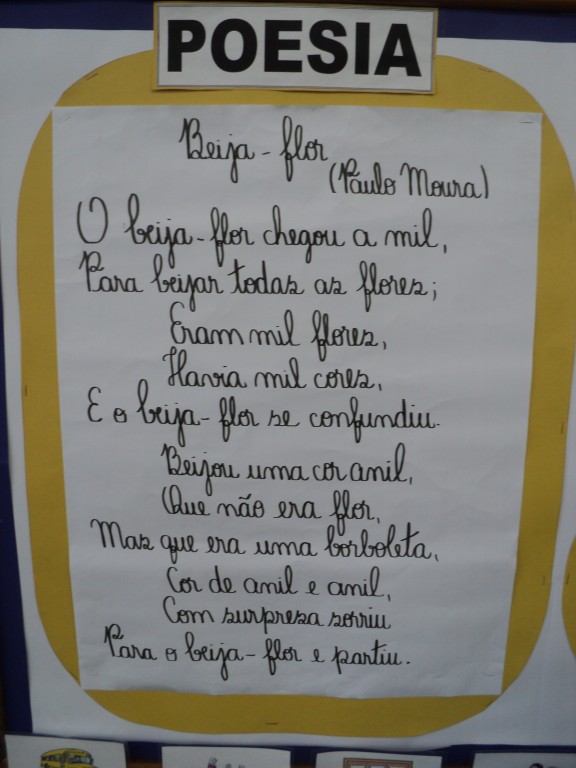 POESIA
Beija-flor
(Paulo Moura)
O beija-flor chegou a mil,
Para beijar todas as flores;
Eram mil flores,
Havia mil cores,
E o beija-flor se confundiu.
Beijou uma cor anil,
Que não era flor,
Mas que era uma borboleta,
Cor de anil e anil,
Com surpresa sorriu
Para o beija-flor e partiu.